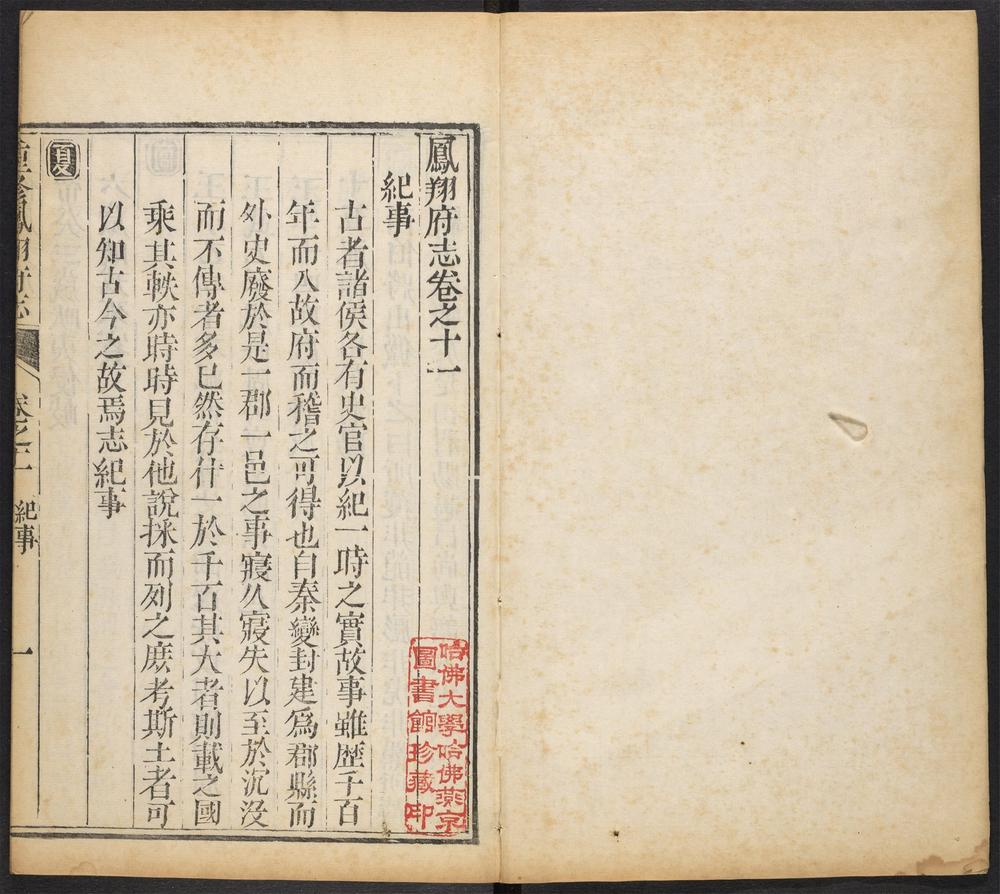 鳳翔府志卷之十一
紀事
古者諸侯各有史官以紀一時之實故事雖歷千百
年而入故府而稽之可得也自秦變封建爲郡縣而
外史廢於是一郡一邑之事寢久寢失以至於沉没
而不傳者多已然存什一於千百其大者則載之國
乘其軼亦時時見於他說採而列之庶考斯土者可
以知古今之故焉志紀事
夏
重修鳳翔府志
卷之十一
紀事
一
哈佛大學哈佛燕京
圖書館珍藏印